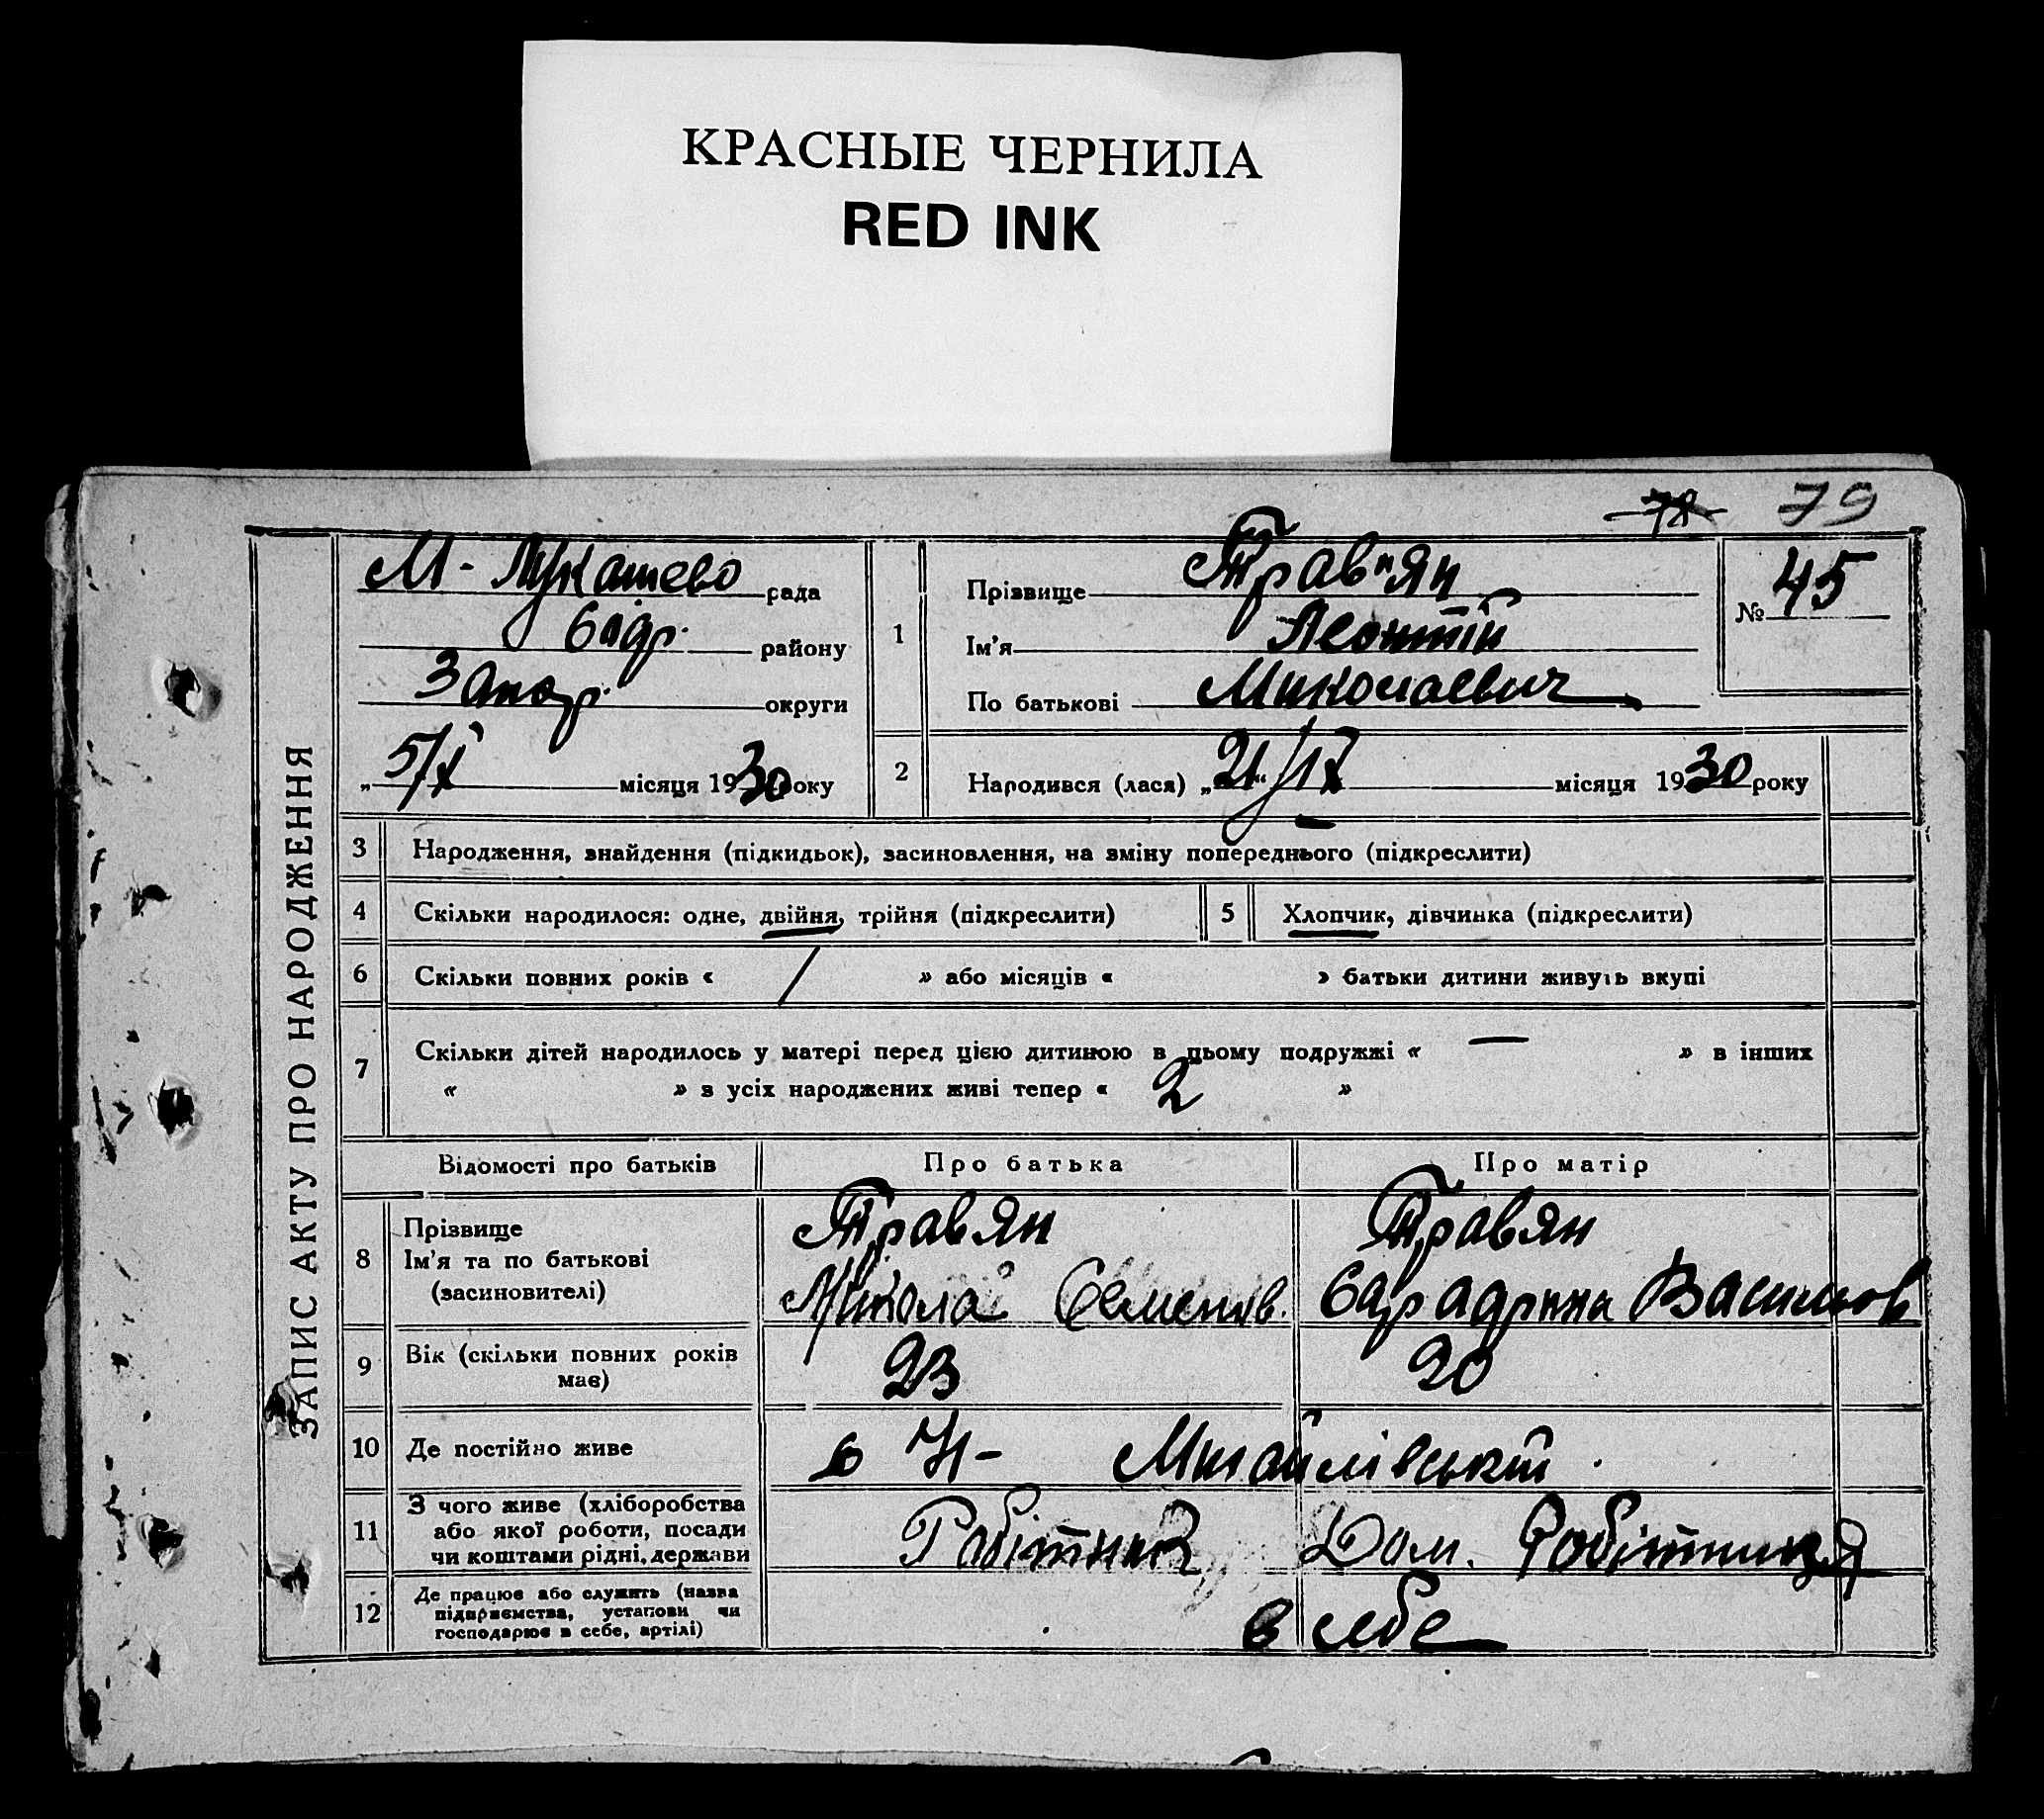 КРАСНЫЕ ЧЕРНИЛА
RED INK
78 79
ЗАПИС АКТУ ПРО НАРОДЖЕННЯ
М-Лукашево рада
району
Запор. округи
„5/X місяця 1930 року
1
Прізвище Трав"ян
Ім'я Леонтій
По батькові Миколаевич
№ 45
2 Народився (лася) „21“/IX місяця 1930 року
3 Народження, знайдення (підкидьок), засиновлення, на зміну попереднього (підкреслити)
4 Скільки народилося: одне, двійня, трійня (підкреслити)
5 Хлопчик, дівчинка (підкреслити)
6 Скільки повних років « / » або місяців « » батьки дитини живуть вкупі
7 Скільки дітей народилось у матері перед цією дитиною в цьому подружжі « — » в інших
« » з усіх народжених живі тепер « 2 »
Відомості про батьків Про батька Про матір
8 Прізвище Травян Травян
Ім'я та по батькові
(засиновителі) Микола Семенов. Василов
9 Вік (скільки повних років 23 20
має)
10 Де постійно живе в Н- Михайлівській
11 З чого живе (хліборобства
або якої роботи, посади Робітник Дом. Робітниця
чи коштами рідні, держави
12 Де працює або служить (назва
підприємства, установи чи в себе
господарює в себе, артілі)